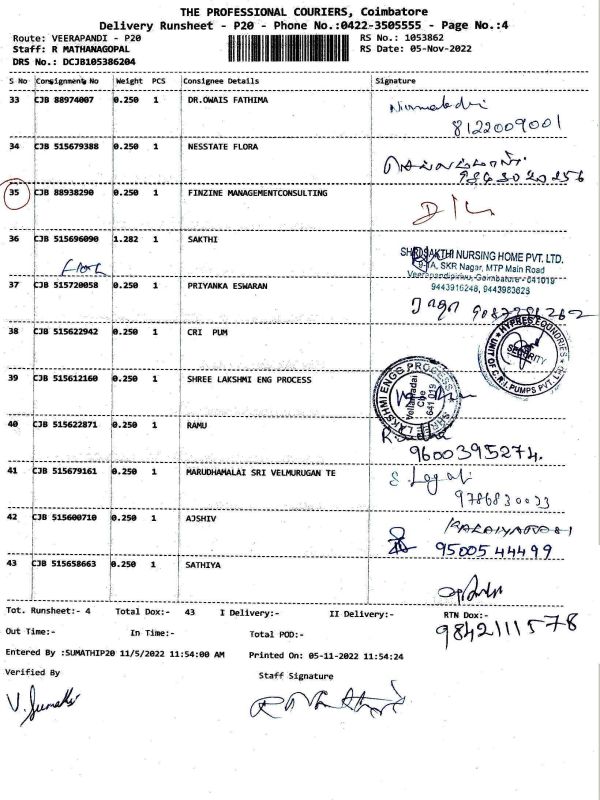 THE PROFESSIONAL COURIERS, Coimbatore
Delivery Runsheet - P20 - Phone No.:0422-3505555 - Page No.:4
Route: VEERAPANDI - P20 RS No.: 1053862
Staff: R MATHANAGOPAL RS Date: 05-Nov-2022
DRS No.: DCJB105386204
S No Consignment No Weight PCS Consignee Details Signature
33 CJB 88974007 0.250 1 DR.OWAIS FATHIMA
8122009001
34 CJB 515679388 0.250 1 NESSTATE FLORA
35 CJB 88938290 0.250 1 FINZINE MANAGEMENTCONSULTING
D/L
36 CJB 515696090 1.282 1 SAKTHI
SHRI SAKTHI NURSING HOME PVT. LTD.
SKR Nagar, MTP Main Road
Coimbatore - 641019
9443916248, 9443983625
37 CJB 515720058 0.250 1 PRIYANKA ESWARAN
38 CJB 515622942 0.250 1 CRI PUM
HYPRES FOUNDRIES
SECURITY
UNIT OF C.R.I. PUMPS PVT. LTD.
39 CJB 515612160 0.250 1 SHREE LAKSHMI ENG PROCESS
SHREE LAKSHMI ENGG PROCESS
Cbe
641 019
40 CJB 515622871 0.250 1 RAMU
9600395274.
41 CJB 515679161 0.250 1 MARUDHAMALAI SRI VELMURUGAN TE
9786830033
42 CJB 515600710 0.250 1 AJSHIV
9500544499
43 CJB 515658663 0.250 1 SATHIYA
Tot. Runsheet:- 4 Total Dox:- 43 I Delivery:- II Delivery:- RTN Dox:-
9842111578
Out Time:- In Time:- Total POD:-
Entered By :SUMATHIP20 11/5/2022 11:54:00 AM Printed On: 05-11-2022 11:54:24
Verified By Staff Signature
V. Sumathi